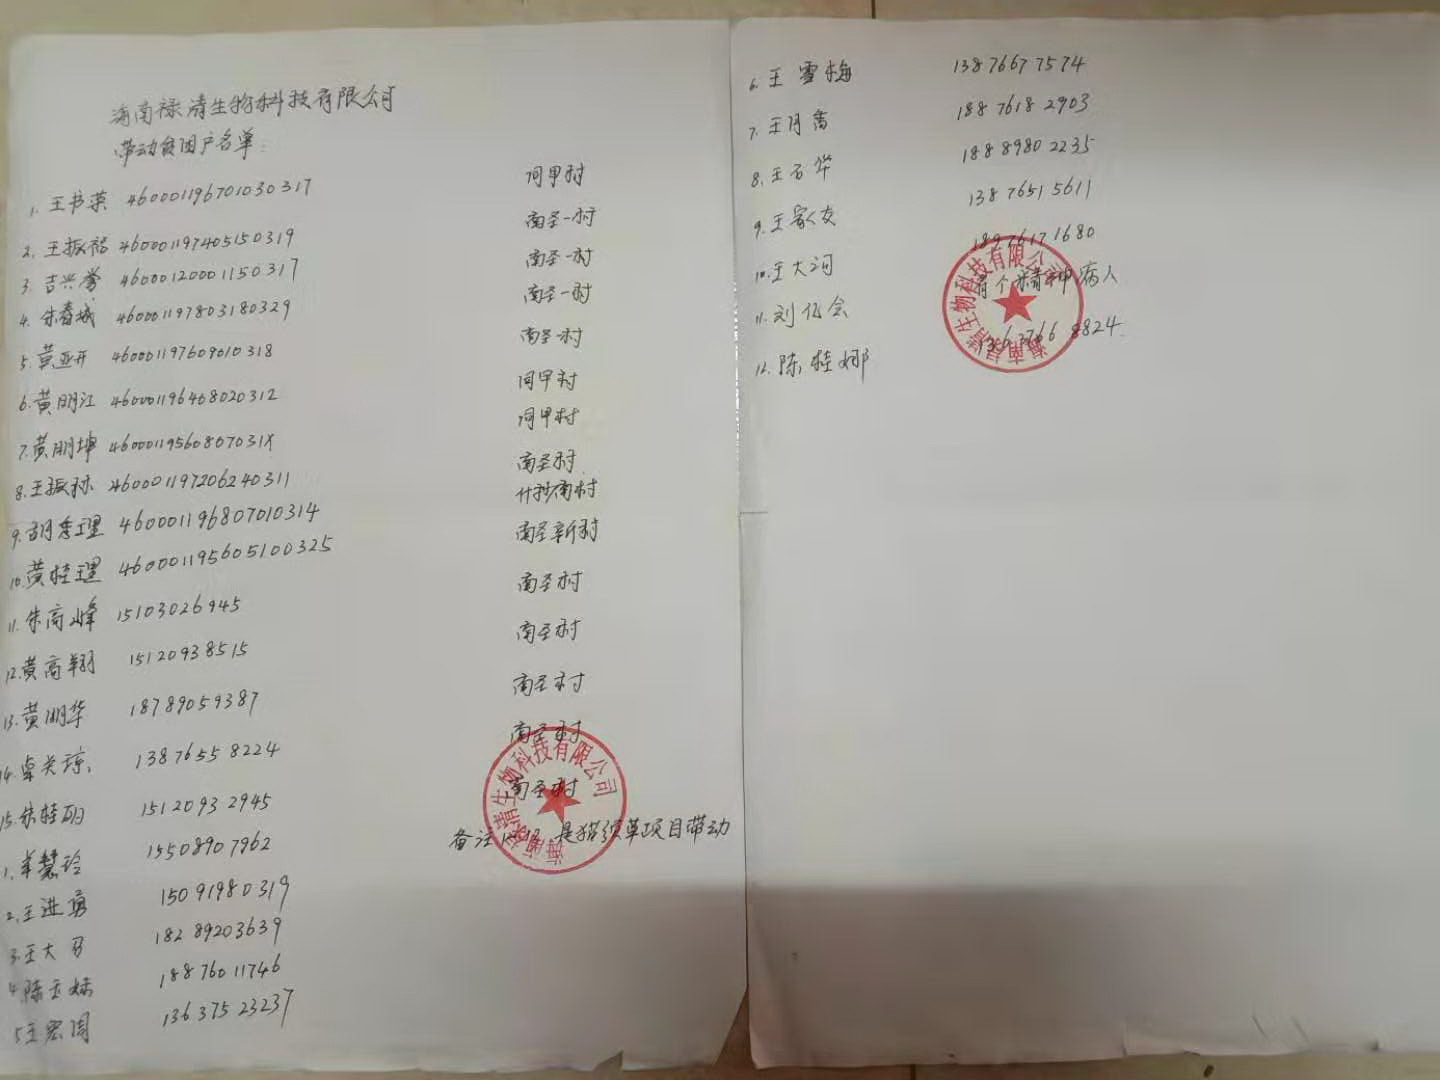 海南禄清生物科技有限公司
带动贫困户名单:
1. 王书荣 460001196701030317 同甲村
2. 王振福 460001197405150319 南圣一村
3. 吉兴誉 460001200011150317 南圣一村
4. 朱春城 460001197803180329 南圣一村
5. 黄亚开 460001197609010318 南圣一村
6. 黄明江 460001196408020312 同甲村
7. 黄明坤 46000119560807031X 同甲村
8. 王振林 460001197206240311 南圣村
9. 胡秀理 460001196807010314 什拱南村
10. 黄桂理 460001195605100325 南圣新村
11. 朱高峰 15103026945 南圣村
12. 黄高翔 15120938515 南圣村
13. 黄明华 18789059387 南圣村
14. 卓关琼 13876558224 南圣村
15. 朱桂明 15120932945 南圣村
备注 是猫须草项目带动
1. 羊慧玲 15508907962
2. 王进勇 15091980319
3. 王大召 18289203639
4. 陈玉妹 18876011746
5 王宏周 13637523237
海南禄清生物科技有限公司
6. 王雪梅 13876677574
7. 王月禽 18876182903
8. 王石华 18889802235
9. 王家友 13876515611
10. 王大河 18976171680
11. 刘亿会 有个精神病人
12. 陈桂娜 13637668824
海南禄清生物科技有限公司